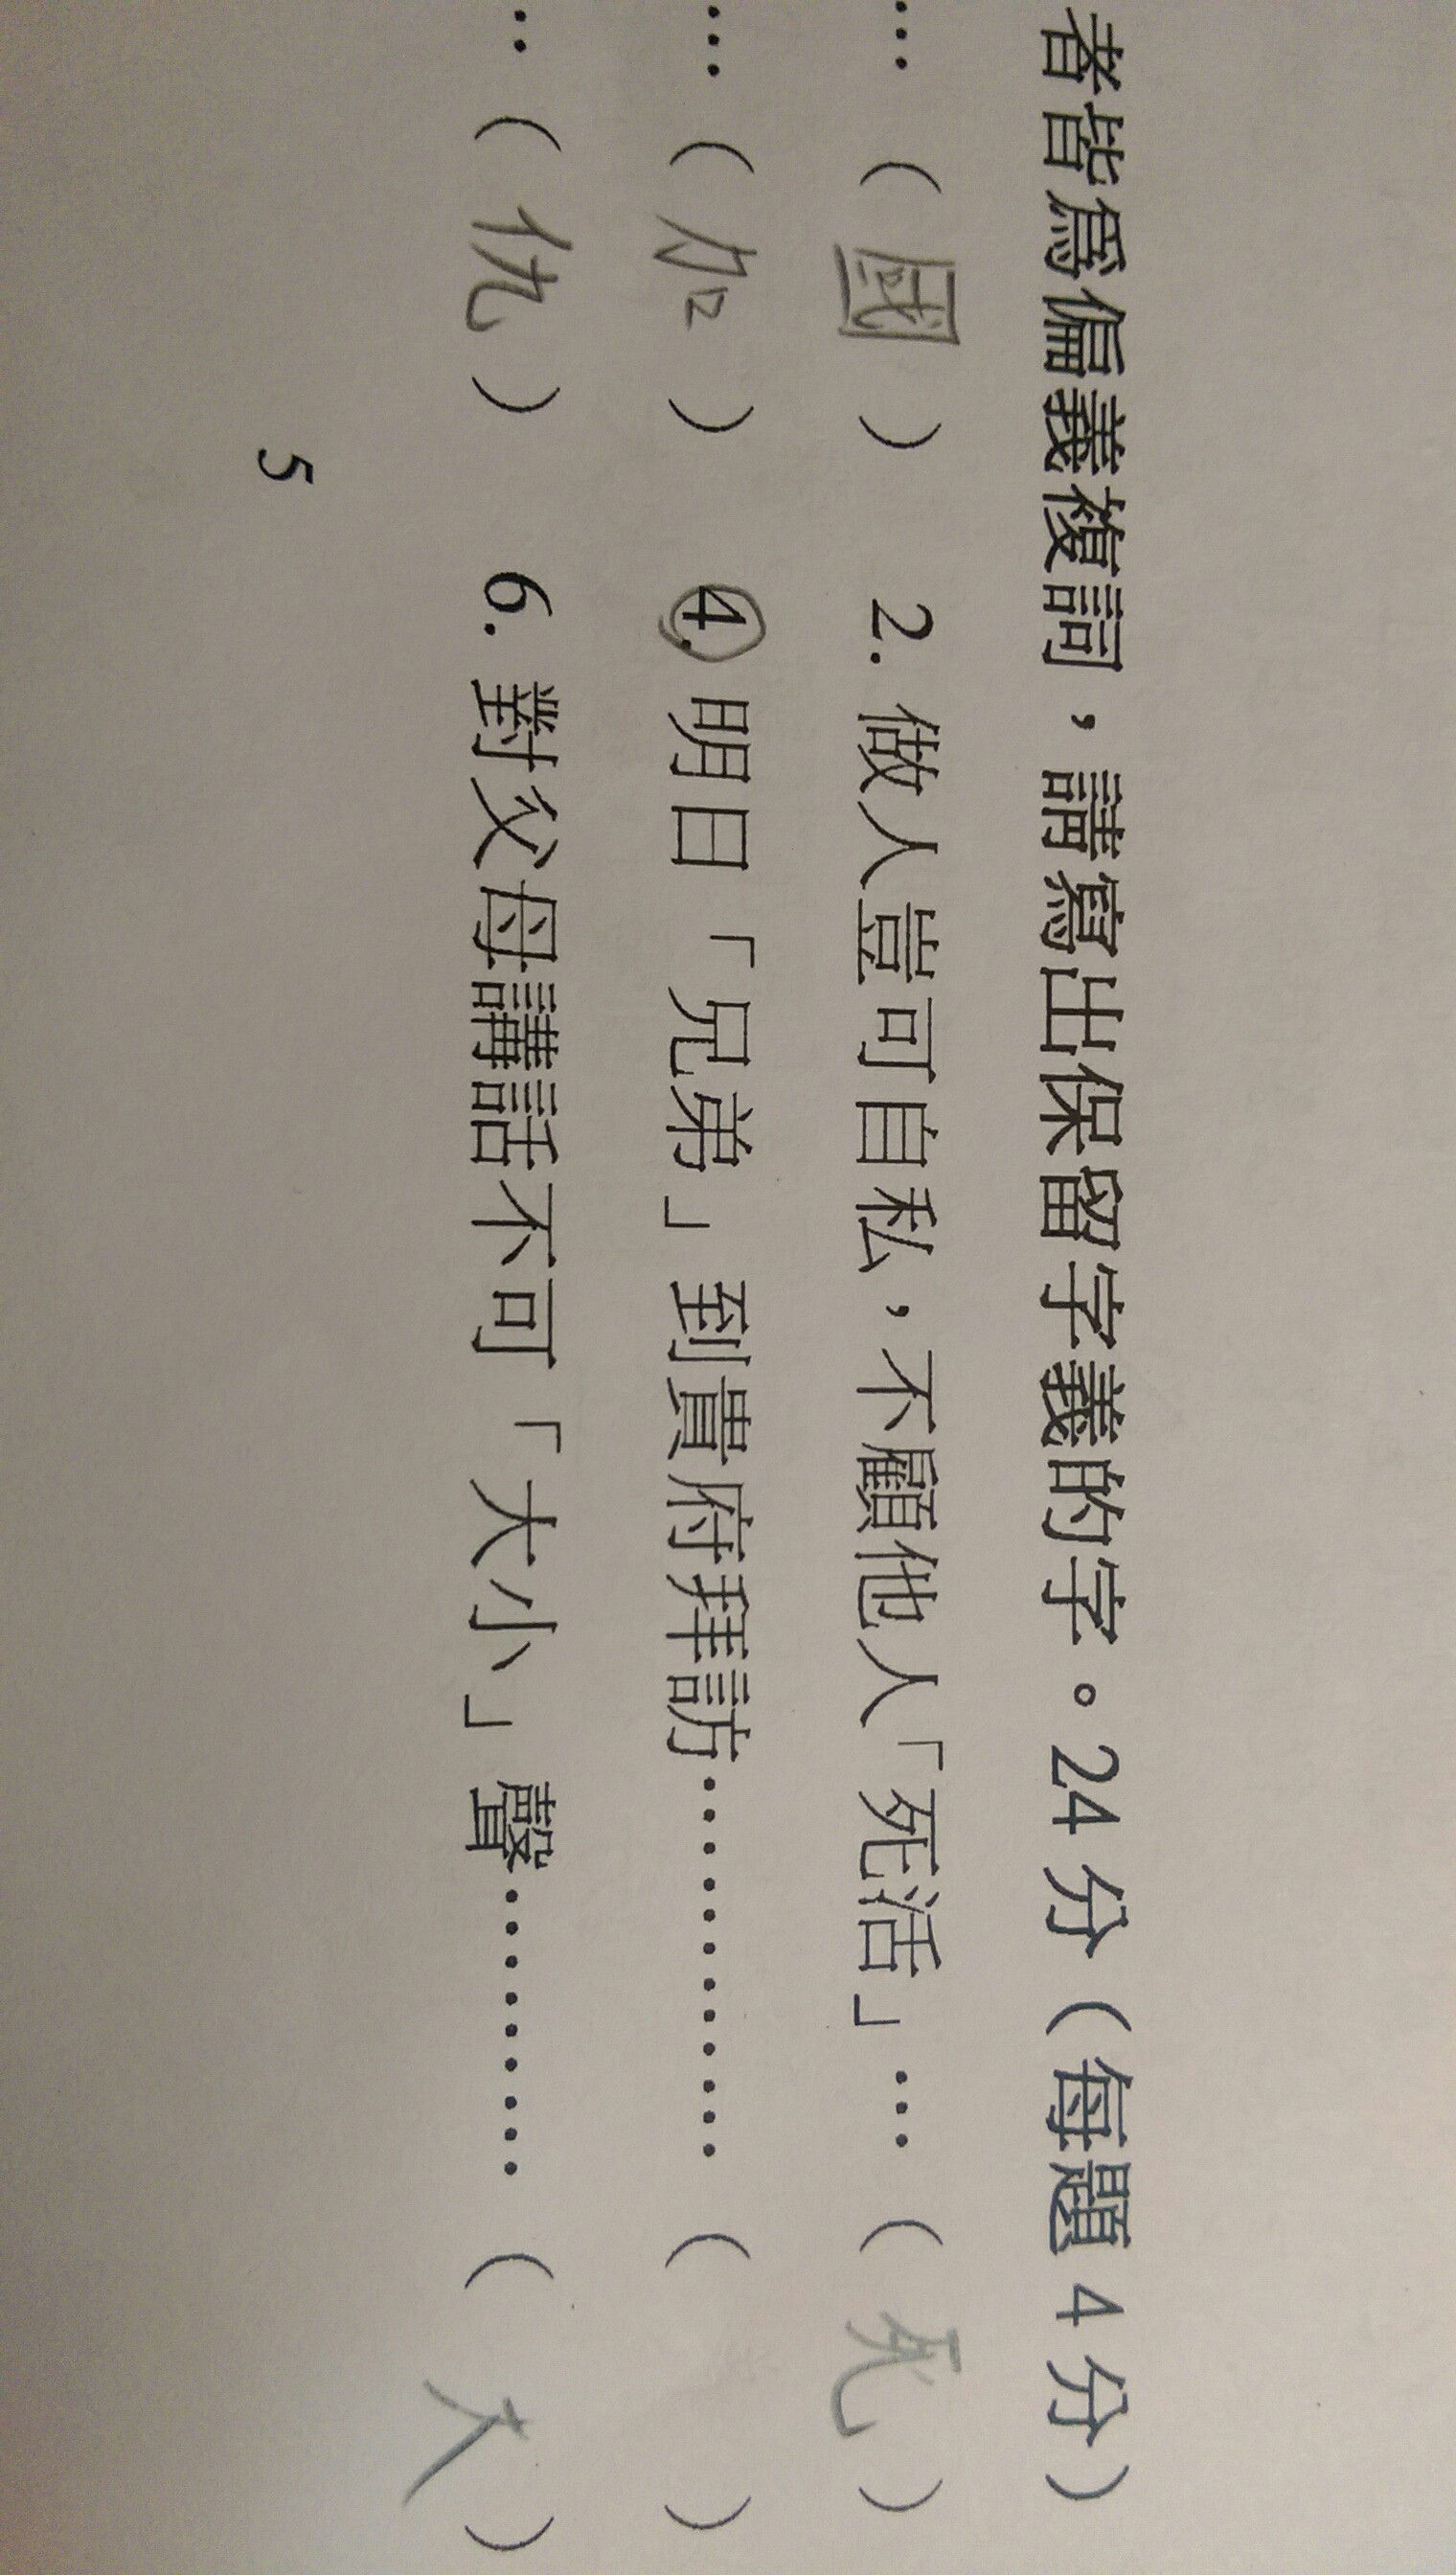 者皆為偏義複詞，請寫出保留字義的字。24分（每題4分）
…（國） 2. 做人豈可自私，不顧他人「死活」…（死）
…（加） 4. 明日「兄弟」到貴府拜訪……………（ ）
‥（仇） 6. 對父母講話不可「大小」聲…………（大）
5